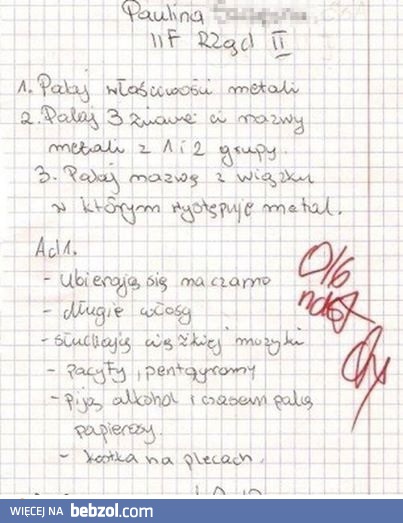 Paulina
IIF Rząd II
1. Podaj właściwości metali
2. Podaj 3 znane ci nazwy
metali z 1 i 2 grupy.
3. Podaj nazwę z wiązku
w którym występuje metal.
Ad1.
- ubierają się na czarno
- długie włosy
- słuchają ciężkiej muzyki
- pacyfy, pentagramy
- piją alkohol i czasem palą
papierosy
- kostka na plecach.
0/6
ndst
WIĘCEJ NA bebzol.com